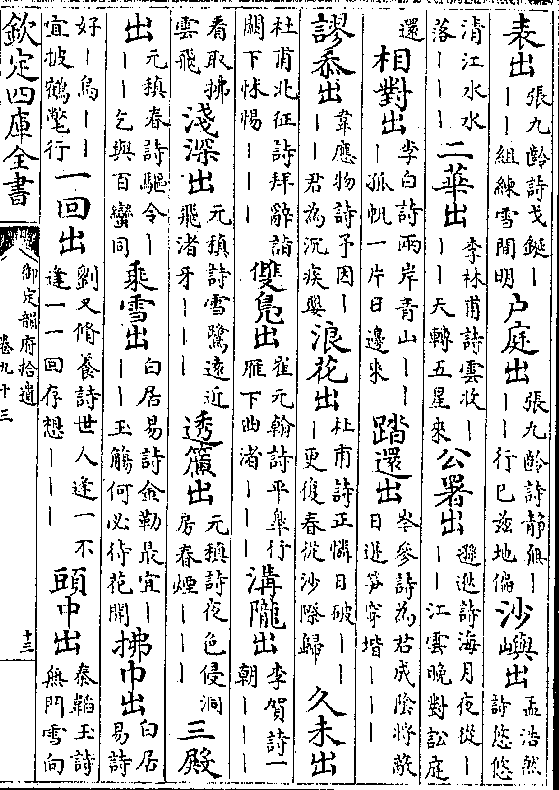 表出 張九齡詩戈鋋丨丨丨組練雪間明 户庭出 張九齡詩靜無丨丨丨行已茲地偏 沙嶼出 孟浩然詩悠悠
清江水水落丨丨丨 二華出 李林甫詩雲收丨丨丨天轉五星來 公署出 遜逖詩海月夜從丨丨丨江雲晚對訟庭
還 相對出 李白詩兩岸青山丨丨丨孤帆一片日邊來 踏還出 岑參詩為君成陰將蔽日迸筍穿堦丨丨丨
謬忝出 韋應物詩予因丨丨丨君為沉疾嬰 浪花出 杜甫詩正憐日破丨丨丨更復春從沙際歸 久未出
杜甫北征詩拜辭詣闕下怵惕丨丨丨 雙鳧出 崔元翰詩平臯行雁下曲渚丨丨丨 溝隴出 李賀詩一朝丨丨丨
看取拂雲飛 淺深出 元稹詩雪鷺遠近飛渚牙丨丨丨 透簾出 元稹詩夜色侵洞房春煙丨丨丨 三殿
出 元稹春詩驅令丨丨丨乞與百蠻同 乘雪出 白居易詩金勒最宜丨丨丨玉觴何必待花開 拂巾出 白居易詩
好丨烏丨丨宜披鶴氅行 一回出 劉叉脩養詩世人逢一不逢一一回存想丨丨丨 頭中出 秦韜玉詩無門雪向
欽定四庫全書 御定韻府拾遺 卷九十三 十三